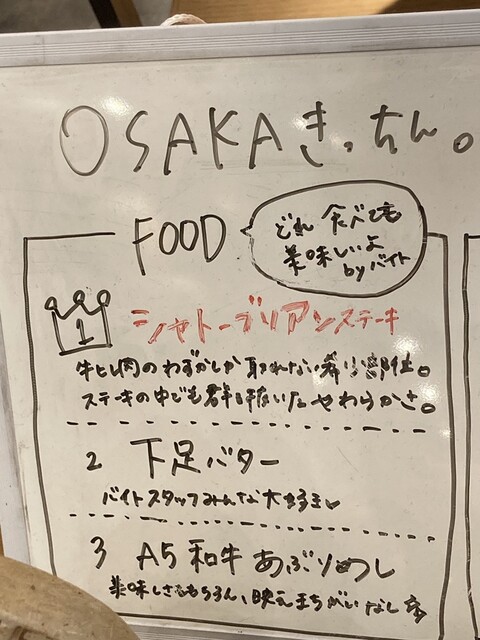 OSAKAきっちん。
FOOD
どれ食べても
美味しいよ
byバイト
1
シャトーブリアンステーキ
牛ヒレ肉のわずかしか取れない希少部位。
ステーキの中でも群を抜いたやわらかさ。
2 下足バター
バイトスタッフみんな大好き
3 A5和牛あぶりめし
美味しさもちろん、映えまちがいなし